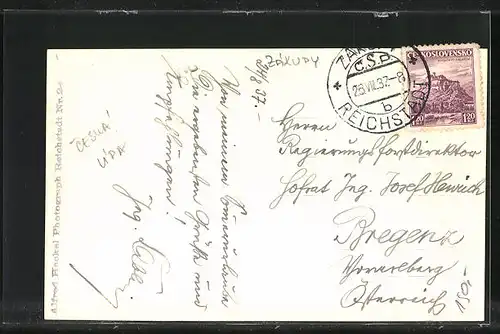 ZÁKUPY
24/8 37.-
Von meinem
Die ergebensten Grüße und
Empfehlungen!
Ing.
ČESKÁ
LÍPA
Alfred Hackel Photograph Reichstadt Nr. 2
ZÁKUPY
Č.S.P.
26.VIII.37-8
b
REICHSTADT
ČESKOSLOVENSKO
1.20
Herrn
Regierungsforstdirektor
Hofrat Ing. Josef Henrich
Bregenz
Vorarlberg
Österreich
150,-